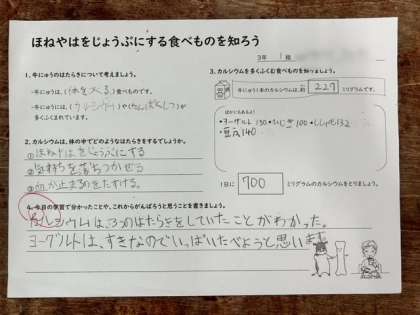 ほねやはをじょうぶにする食べものを知ろう
3年 組
1. 牛にゅうのはたらきについて考えましょう。
・牛にゅうは、(体を太くる)食べものです。
・牛にゅうには、(カルシウム)や(たんぱくしつ)が
多くふくまれています。
2. カルシウムは、体の中でどのようなはたらきをするでしょうか。
①ほねやはをじょうぶにする
②気持ちを落ちつかせる
③血が止まるのをたすける。
3. カルシウムを多くふくむ食べものを知りましょう。
牛にゅう1本のカルシウムは、約 227 ミリグラムです。
ほかにもあるよ!
・ヨーグルト130 ・ひじき100 ・ししゃも132
・豆ふ140
1日に 700 ミリグラムのカルシウムをとりましょう。
4. 今日の学習で分かったことや、これからがんばろうと思うことを書きましょう。
カルシウムは、3つのはたらきをしていたことがわかった。
ヨーグルトは、すきなのでいっぱいたべようと思います